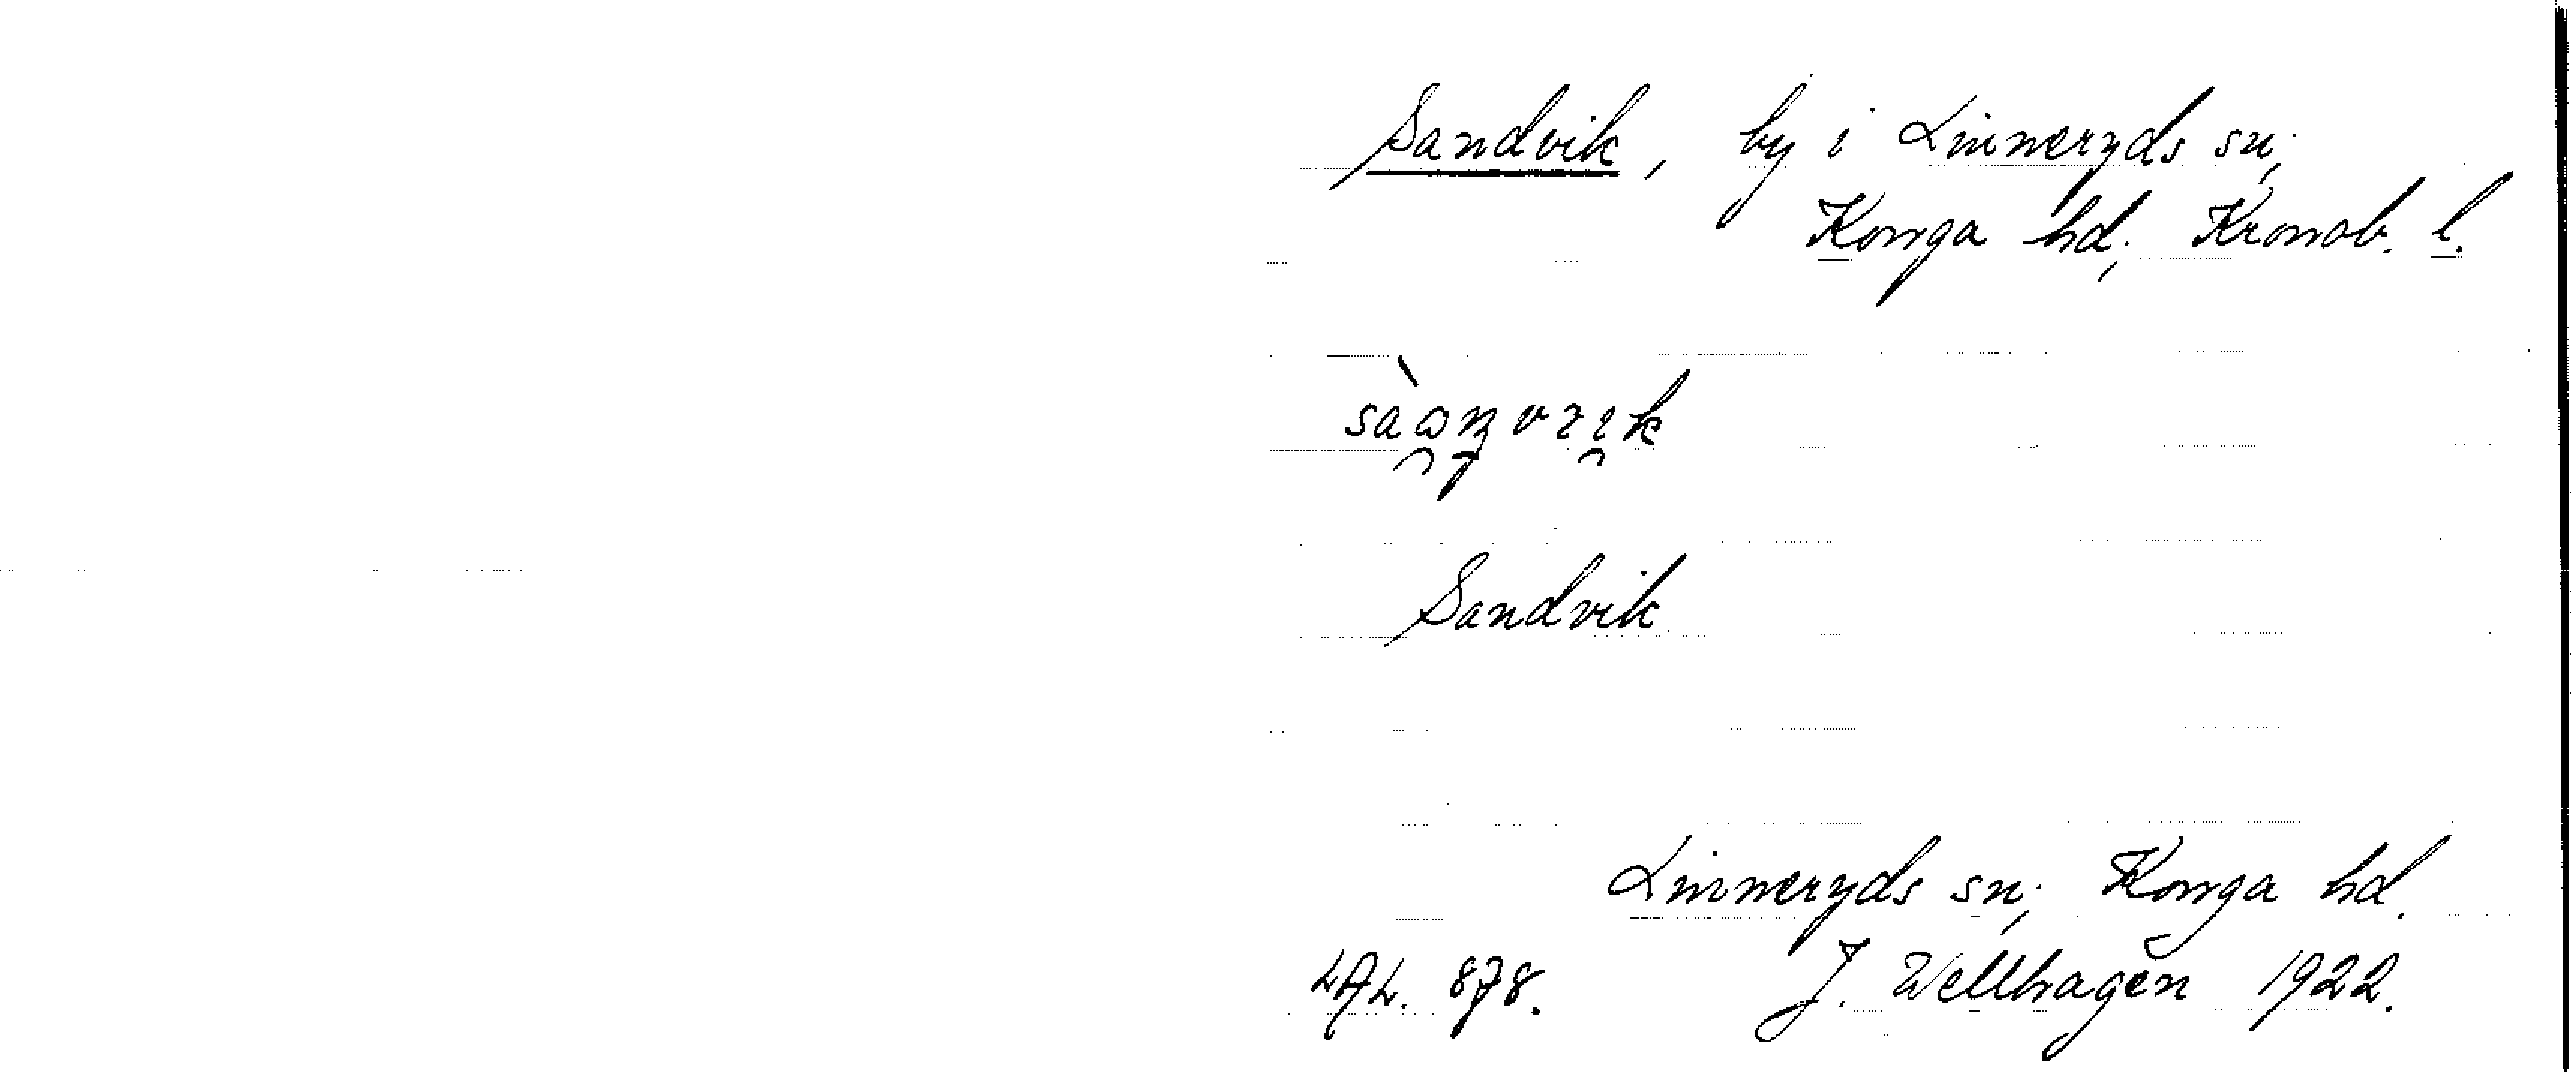 Sandvik, by i Linneryds sn,
Konga hd, Kronob. l.
Sandvik
Linneryds sn, Konga hd.
LAL. 878. J. Wellhagén 1922.